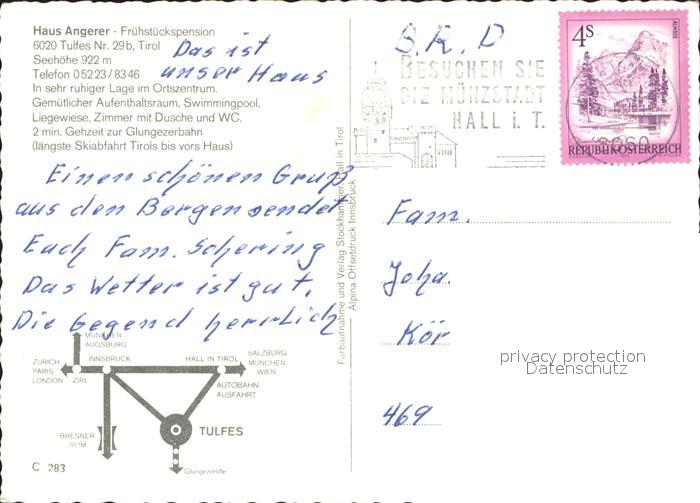 Haus Angerer - Frühstückspension
6020 Tulfes Nr. 29b, Tirol
Seehöhe 922 m
Telefon 05223/8346
In sehr ruhiger Lage im Ortszentrum.
Gemütlicher Aufenthaltsraum, Swimmingpool,
Liegewiese, Zimmer mit Dusche und WC.
2 min. Gehzeit zur Glungezerbahn
(längste Skiabfahrt Tirols bis vors Haus)
Das ist
unser Haus
Einen schönen Gruß
aus den Bergen sendet
Euch Fam. Schering
Das Wetter ist gut,
Die Gegend herrlich
MÜNCHEN
AUGSBURG
ZÜRICH
PARIS
LONDON
ZIRL
INNSBRUCK
HALL IN TIROL
SALZBURG
MÜNCHEN
WIEN
AUTOBAHN-
AUSFAHRT
BRENNER
ROM
TULFES
Glungezerlifte
C 283
Farbaufnahme und Verlag Stockhammer, Hall in Tirol
Alpina Offsetdruck Innsbruck
B.R.D
BESUCHEN SIE
DIE MÜNZSTADT
HALL i. T.
4S
ALMSEE
6060
REPUBLIK ÖSTERREICH
Fam.
Joha.
Kör
privacy protection
Datenschutz
469